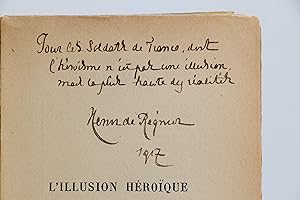 Pour les Soldats de France, dont
l'héroïsme n'est pas une illusion,
mais la plus haute des réalités
Henri de Régnier
1917
L'ILLUSION HÉROÏQUE